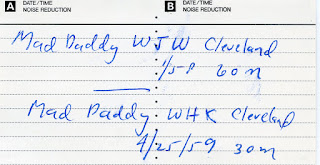 A DATE/TIME NOISE REDUCTION B DATE/TIME NOISE REDUCTION
Mad Daddy WJW Cleveland
1/58 60m
Mad Daddy WHK Cleveland
4/25/59 30m